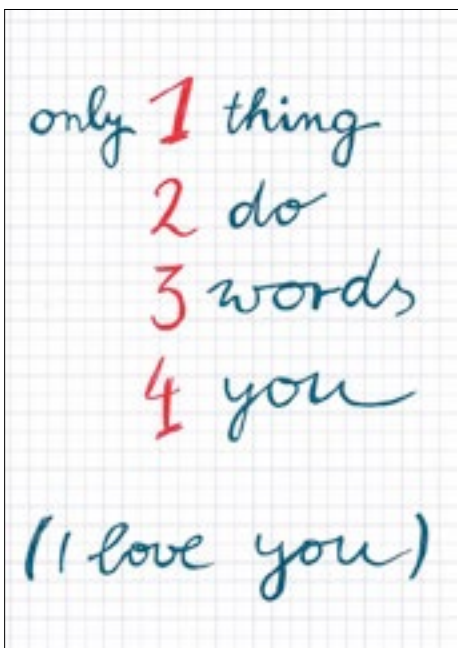 only 1 thing
2 do
3 words
4 you
(I love you)